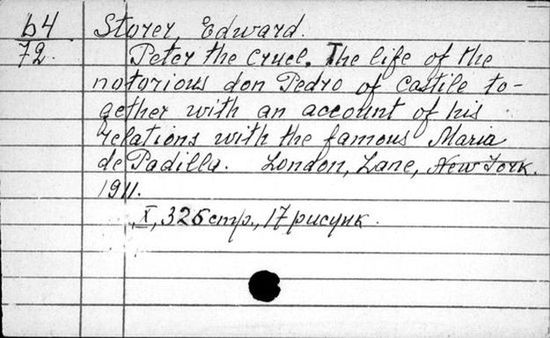 64 Storer, Edward.
72. Peter the Cruel. The life of the
notorious don Pedro of Castile to-
gether with an account of his
relations with the famous Maria
de Padilla. London, Lane, New York.
1911.
X, 326 стр., 17 рисунк.